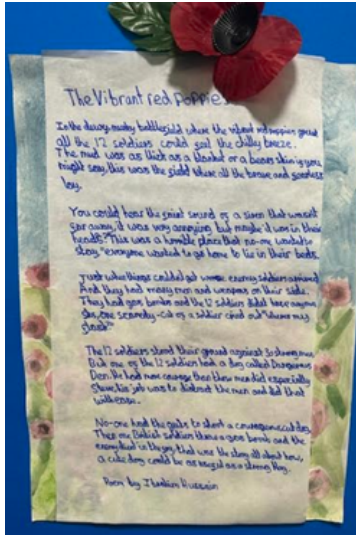 The Vibrant red Poppies
In the dewy, muddy battlefield where the vibrant red poppies grow
all the 12 soldiers could feel the chilly breeze.
The mud was as thick as a blanket or a bears skin if you
might say, this was the field where all the brave and
lay.
You could hear the faint sound of a siren that wasn't
far away, it was very annoying but maybe it was in their
heads? This was a horrible place that no-one wanted to
stay "everyone wanted to go home to lie in their beds.
Just when things couldn't get worse enemy soldiers arrived
And they had many men and weapons on their side.
They had gas bombs and the 12 soldiers didn't have any
one scaredy-cat of a soldier cried out "where my
The 12 soldiers stood their ground against 30 strong men
But one of the 12 soldiers had a Dog called Dangerous
Den. He had more courage than those men did especially
Steve, his job was to distract the men and did that
with ease.
No-one had the guts to shoot a courageous, cut dog.
Then one British soldier threw a gas bomb and the
enemy died in the fog that was the story all about how,
a cute dog could be as useful as a strong
Poem by Ibrahim Hussain